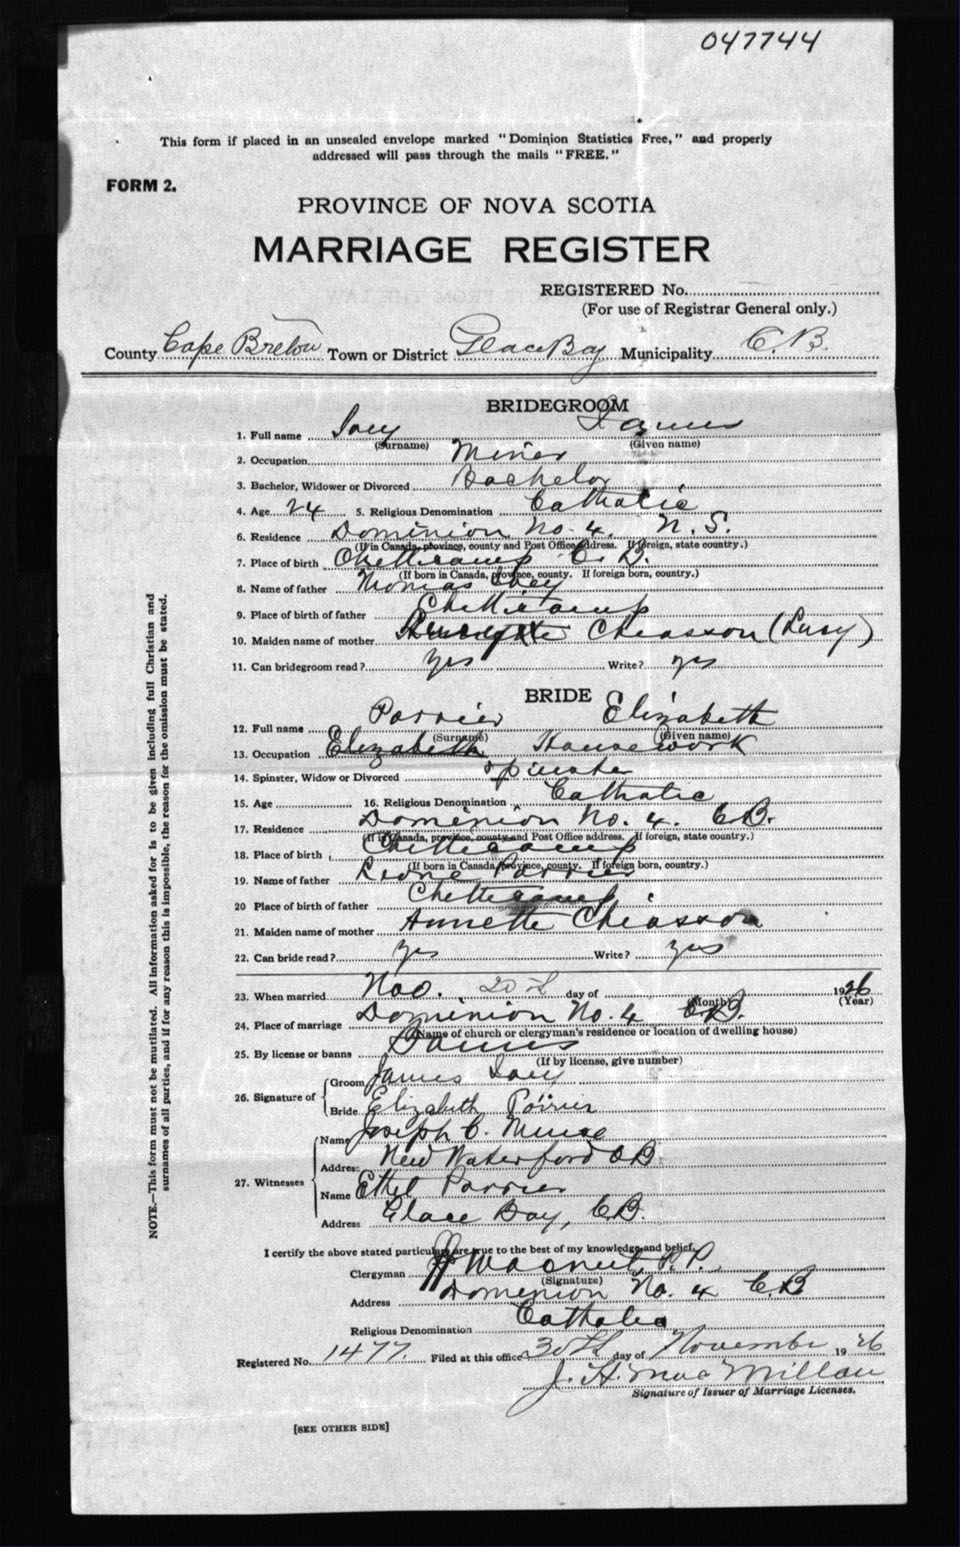 047744
This form if placed in an unsealed envelope marked "Dominion Statistics Free," and properly
addressed will pass through the mails "FREE."
FORM 2.
PROVINCE OF NOVA SCOTIA
MARRIAGE REGISTER
REGISTERED No.
(For use of Registrar General only.)
County Cape Breton Town or District Glace Bay Municipality C. B.
BRIDEGROOM
1. Full name James
(Surname) (Given name)
2. Occupation Miner
3. Bachelor, Widower or Divorced Bachelor
4. Age 24 5. Religious Denomination Catholic
6. Residence Dominion No. 4, N. S.
(If in Canada, province, county and Post Office address. If foreign, state country.)
7. Place of birth Chetticamp C. B.
(If born in Canada, province, county. If foreign born, country.)
8. Name of father Thomas
9. Place of birth of father Chetticamp
10. Maiden name of mother Chiasson (Lucy)
11. Can bridegroom read? Yes Write? yes
BRIDE
12. Full name Porrier Elizabeth
(Surname) (Given name)
13. Occupation Elizabeth Housework
14. Spinster, Widow or Divorced Spinster
15. Age 16. Religious Denomination Catholic
17. Residence Dominion No. 4. C.B.
(If in Canada, province, county and Post Office address. If foreign, state country.)
18. Place of birth Chetticamp
(If born in Canada, province, county. If foreign born, country.)
19. Name of father Porrier
20 Place of birth of father Chetticamp
21. Maiden name of mother Annette Chiasson
22. Can bride read? Yes Write? yes
23. When married Nov. 20th day of 1926
(Month) (Year)
24. Place of marriage Dominion No. 4 C.B.
(Name of church or clergyman's residence or location of dwelling house)
25. By license or banns Banns
(If by license, give number)
26. Signature of Groom James
Bride Elizabeth Poirier
27. Witnesses Name Joseph C.
Address New Waterford C B
Name Ethel Porrier
Address Glace Bay, C.B.
I certify the above stated particulars are true to the best of my knowledge and belief.
Clergyman P.P.
(Signature)
Address Dominion No. 4 C.B
Religious Denomination Catholic
Registered No. 1477. Filed at this office 30th day of November 1926
J. H. MacMillan
Signature of Issuer of Marriage Licenses.
[SEE OTHER SIDE]
NOTE.—This form must not be mutilated. All information asked for is to be given including full Christian and
surnames of all parties, and if for any reason this is impossible, the reason for the omission must be stated.